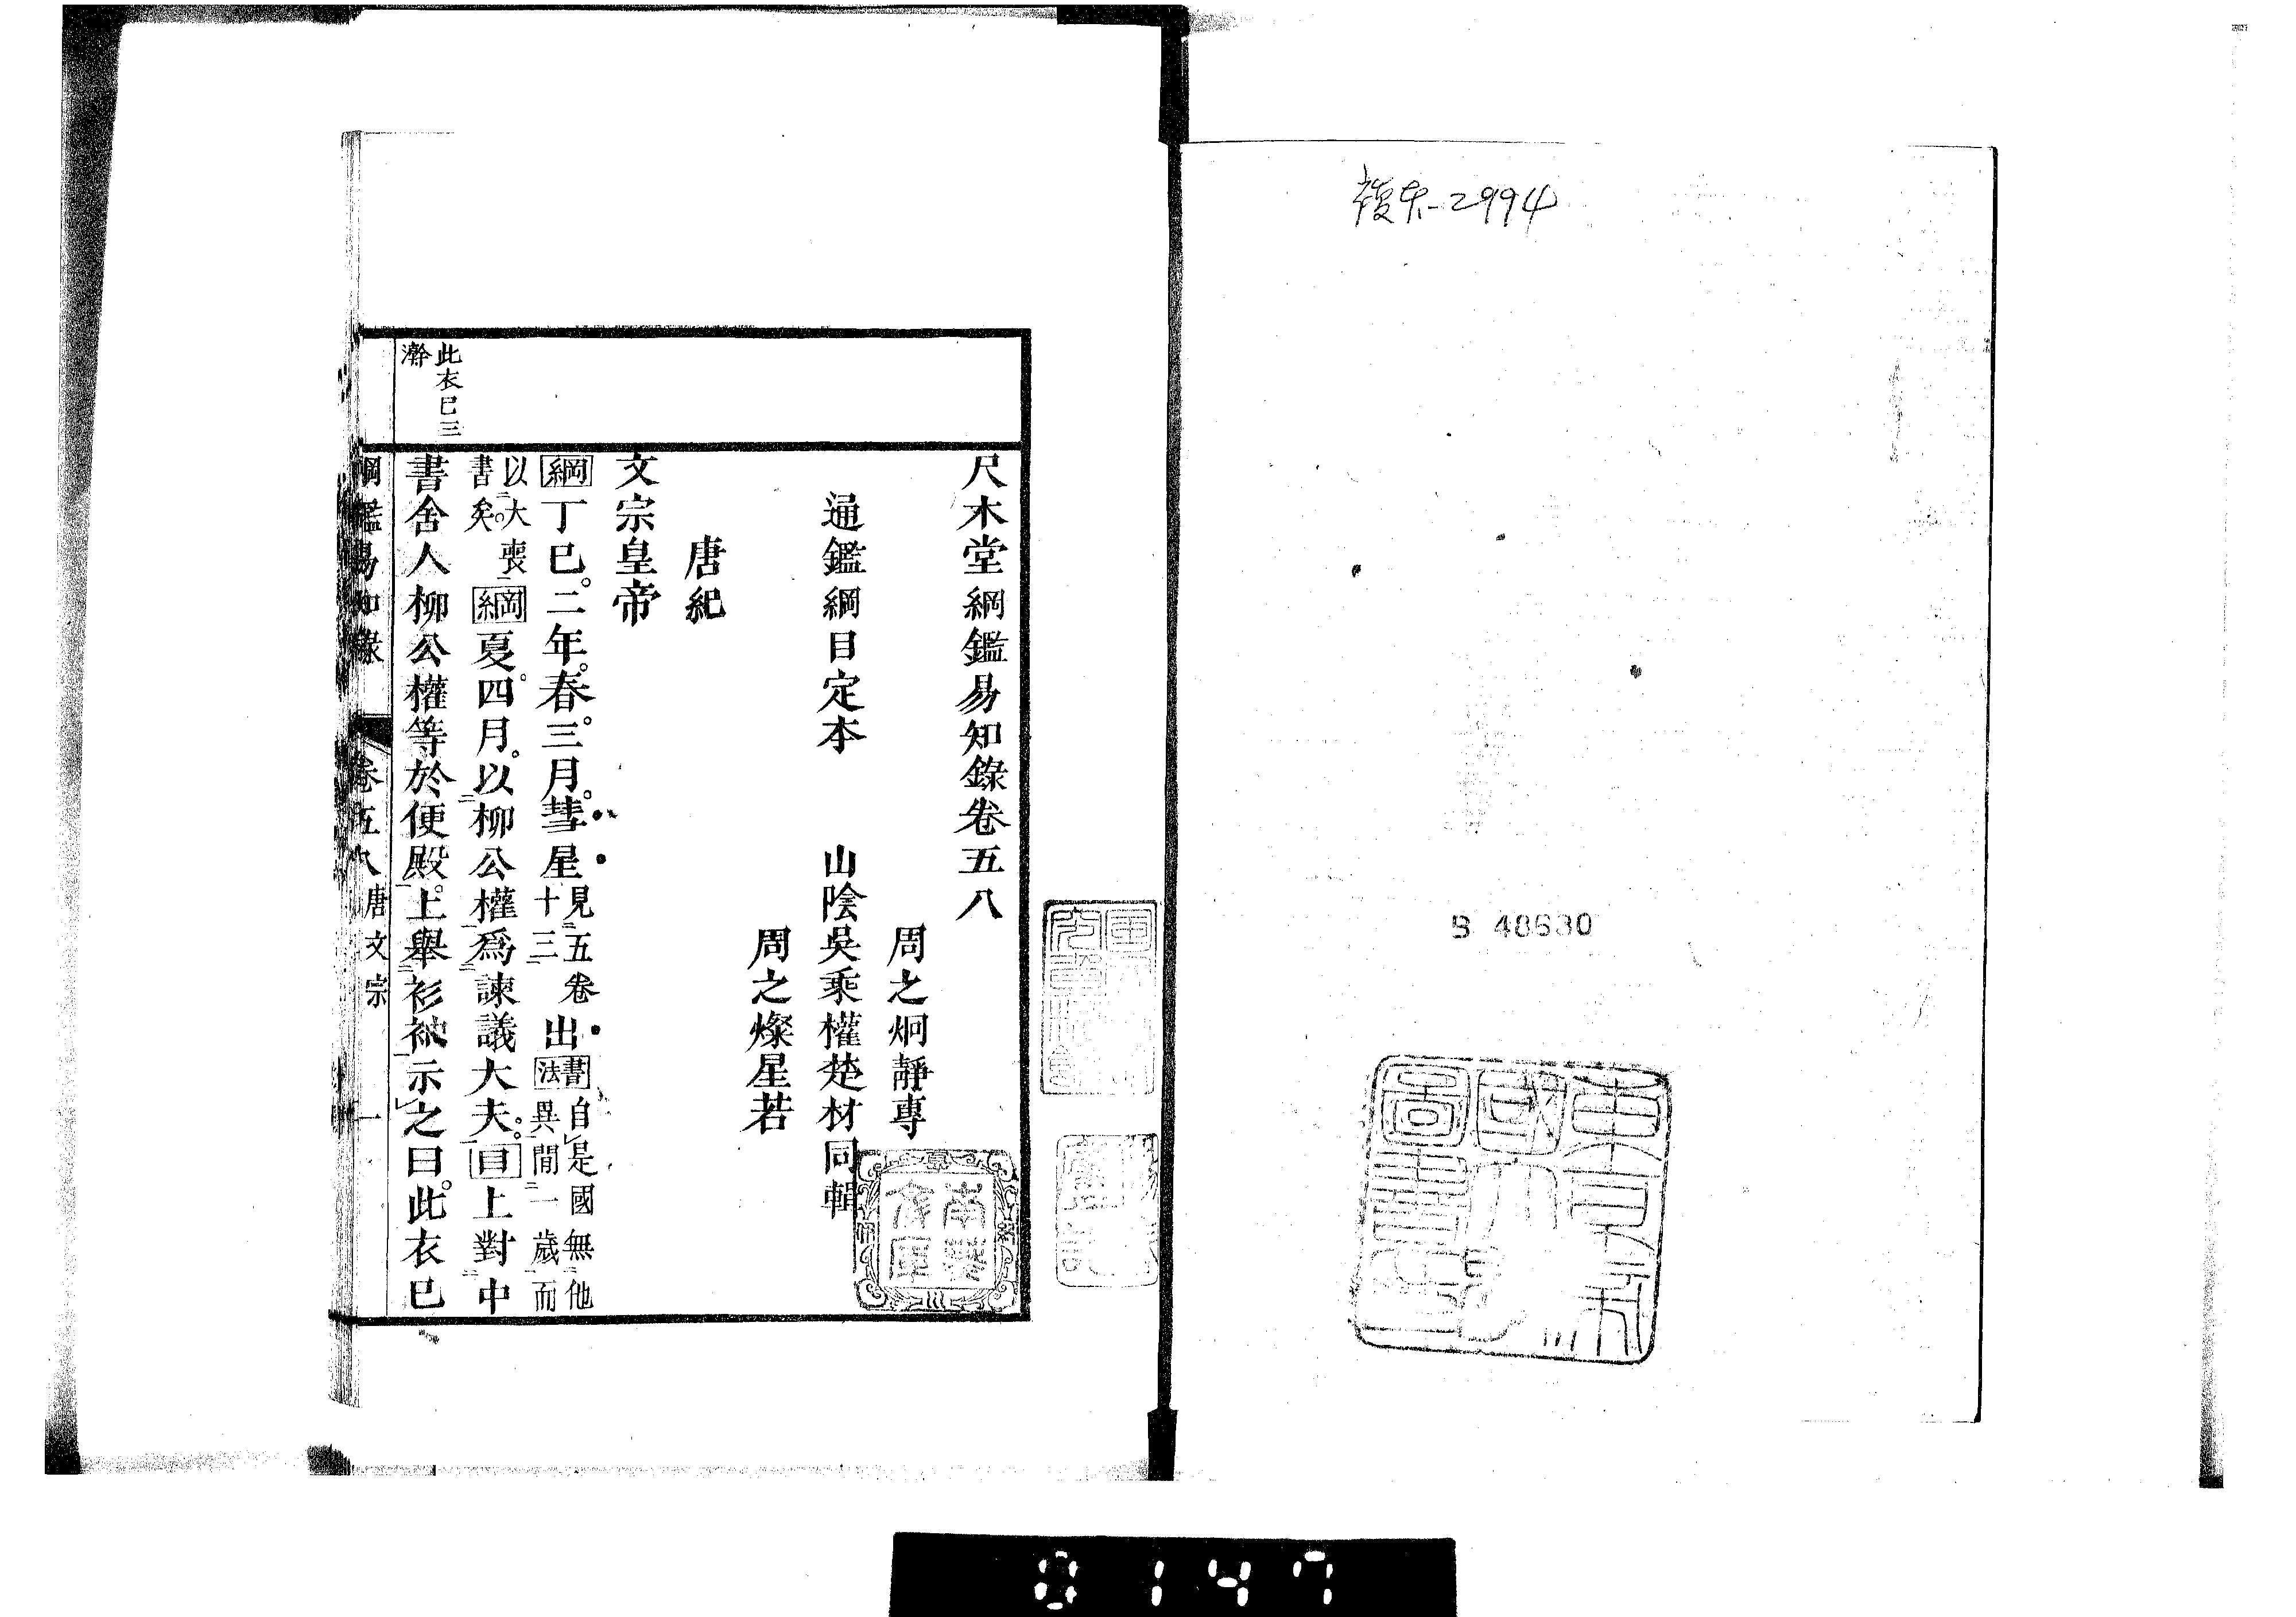 複本-2994
S 48630
東京帝國大學圖書印
尺木堂綱鑑易知錄卷五八
周之炯靜專
通鑑綱目定本 山陰吳乘權楚材同輯
周之燦星若
唐紀
文宗皇帝
綱丁巳。二年。春。三月。彗星見五卷十三出書法自是國無他異間一歲而
以大喪書矣。綱夏。四月。以柳公權爲諫議大夫。目上對中
書舍人柳公權等於便殿。上舉衫袖示之曰。此衣已
此衣已三
澣
綱鑑易知錄 卷五八 唐文宗 一
南葵文庫
0147